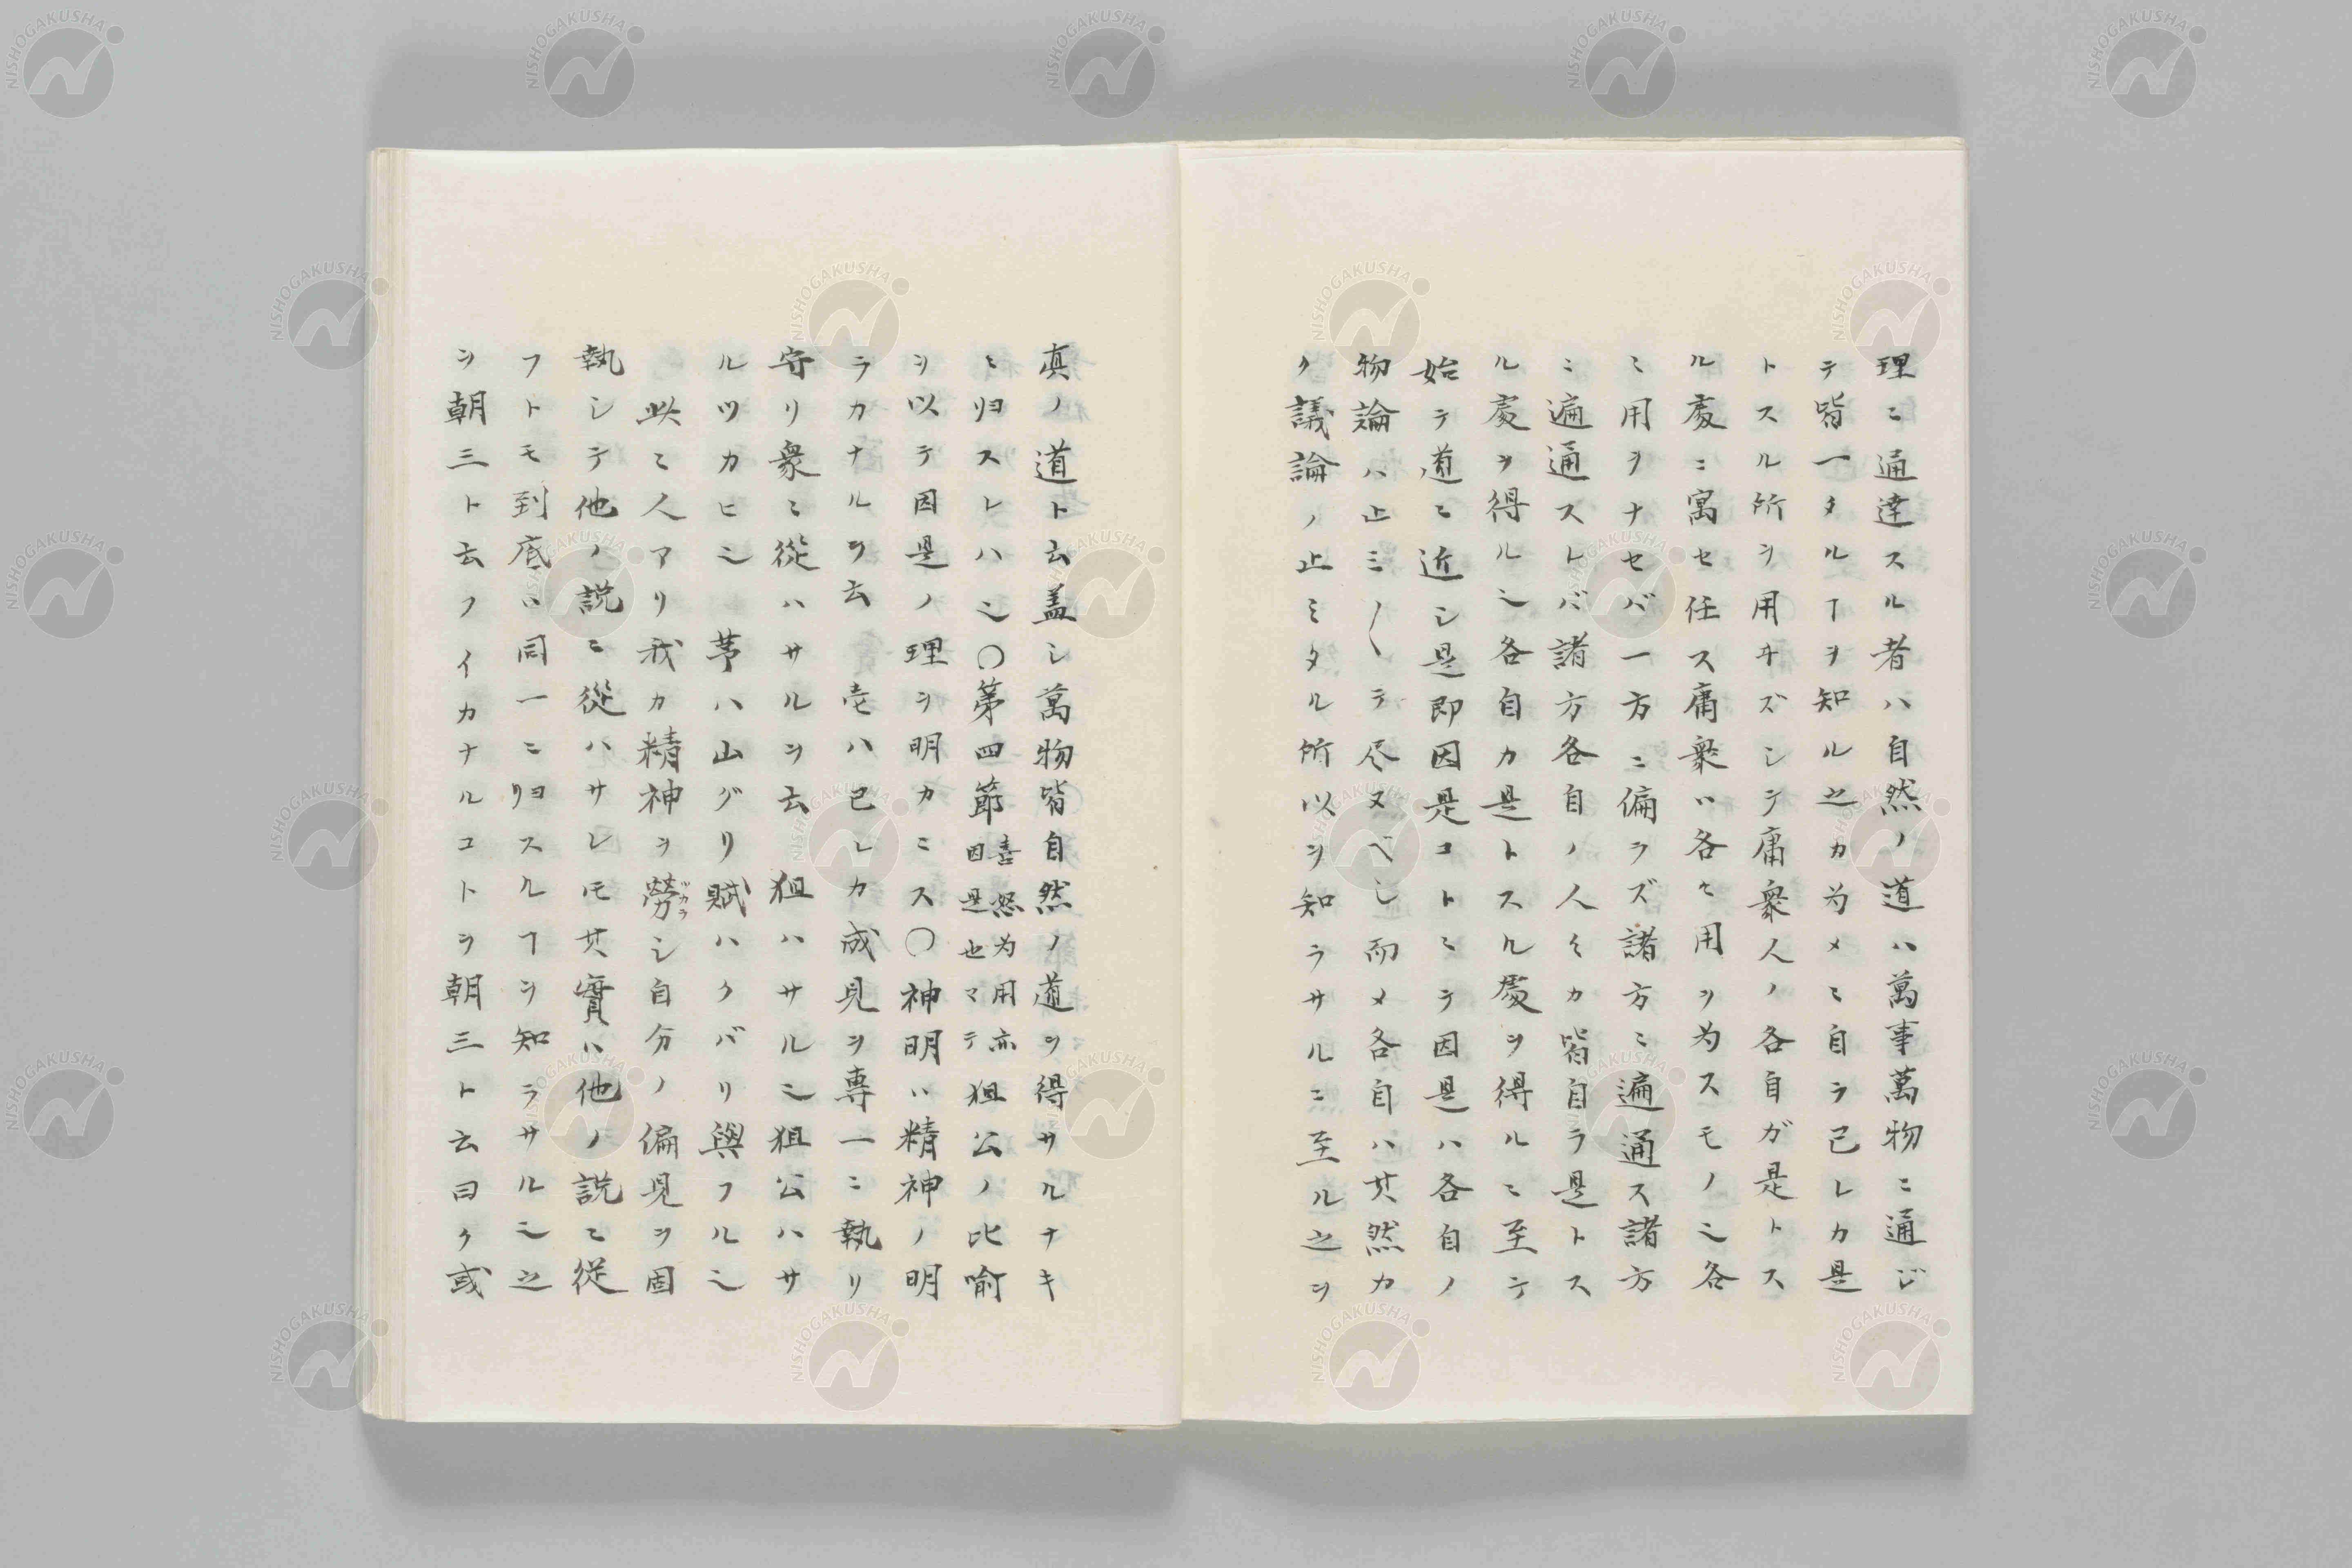 理ニ通達スル者ハ自然ノ道ハ萬事萬物ニ通ジ
テ皆一タルヿヲ知ル之カ為メニ自ラ己レカ是
トスル所ヲ用ヰズシテ庸衆人ノ各自ガ是トス
ル處ニ寓セ任ス庸衆ハ各々用ヲ為スモノ也各
ミ用ヲナセバ一方ニ偏ラズ諸方ニ遍通ス諸方
ニ遍通スレバ諸方各自ノ人々カ皆自ラ是トス
ル處ヲ得ル也各自カ是トスル處ヲ得ルニ至テ
始テ道ニ近シ是即因是コトミテ因是ハ各自ノ
物論ハ止ミ〳〵テ尽ヌベシ而メ各自ハ其然カ
ク議論ノ止ミタル所以ヲ知ラサルニ至ル之ヲ
真ノ道ト云蓋シ萬物皆自然ノ道ヲ得サルナキ
ニ归スレハ也〇第四節喜怒为用亦因是也マテ狙公ノ比喻
ヲ以テ因是ノ理ヲ明カニス〇神明ハ精神ノ明
ラカナルヲ云　壱ハ己レカ成見ヲ専一ニ執リ
守リ衆ニ從ハサルヲ云　狙ハサル也狙公ハサ
ルツカヒ也　芧ハ山グリ賦ハクバリ與フル也
此ニ人アリ我カ精神ヲ勞ツカラシ自分ノ偏見ヲ固
執シテ他ノ説ニ從ハサレ𪜈其實ハ他ノ説ニ從
フトモ到底ハ同一ニ归スルヿヲ知ラサル也之
ヲ朝三ト云フイカナルコトヲ朝三ト云曰ク或
NISHOGAKUSHA